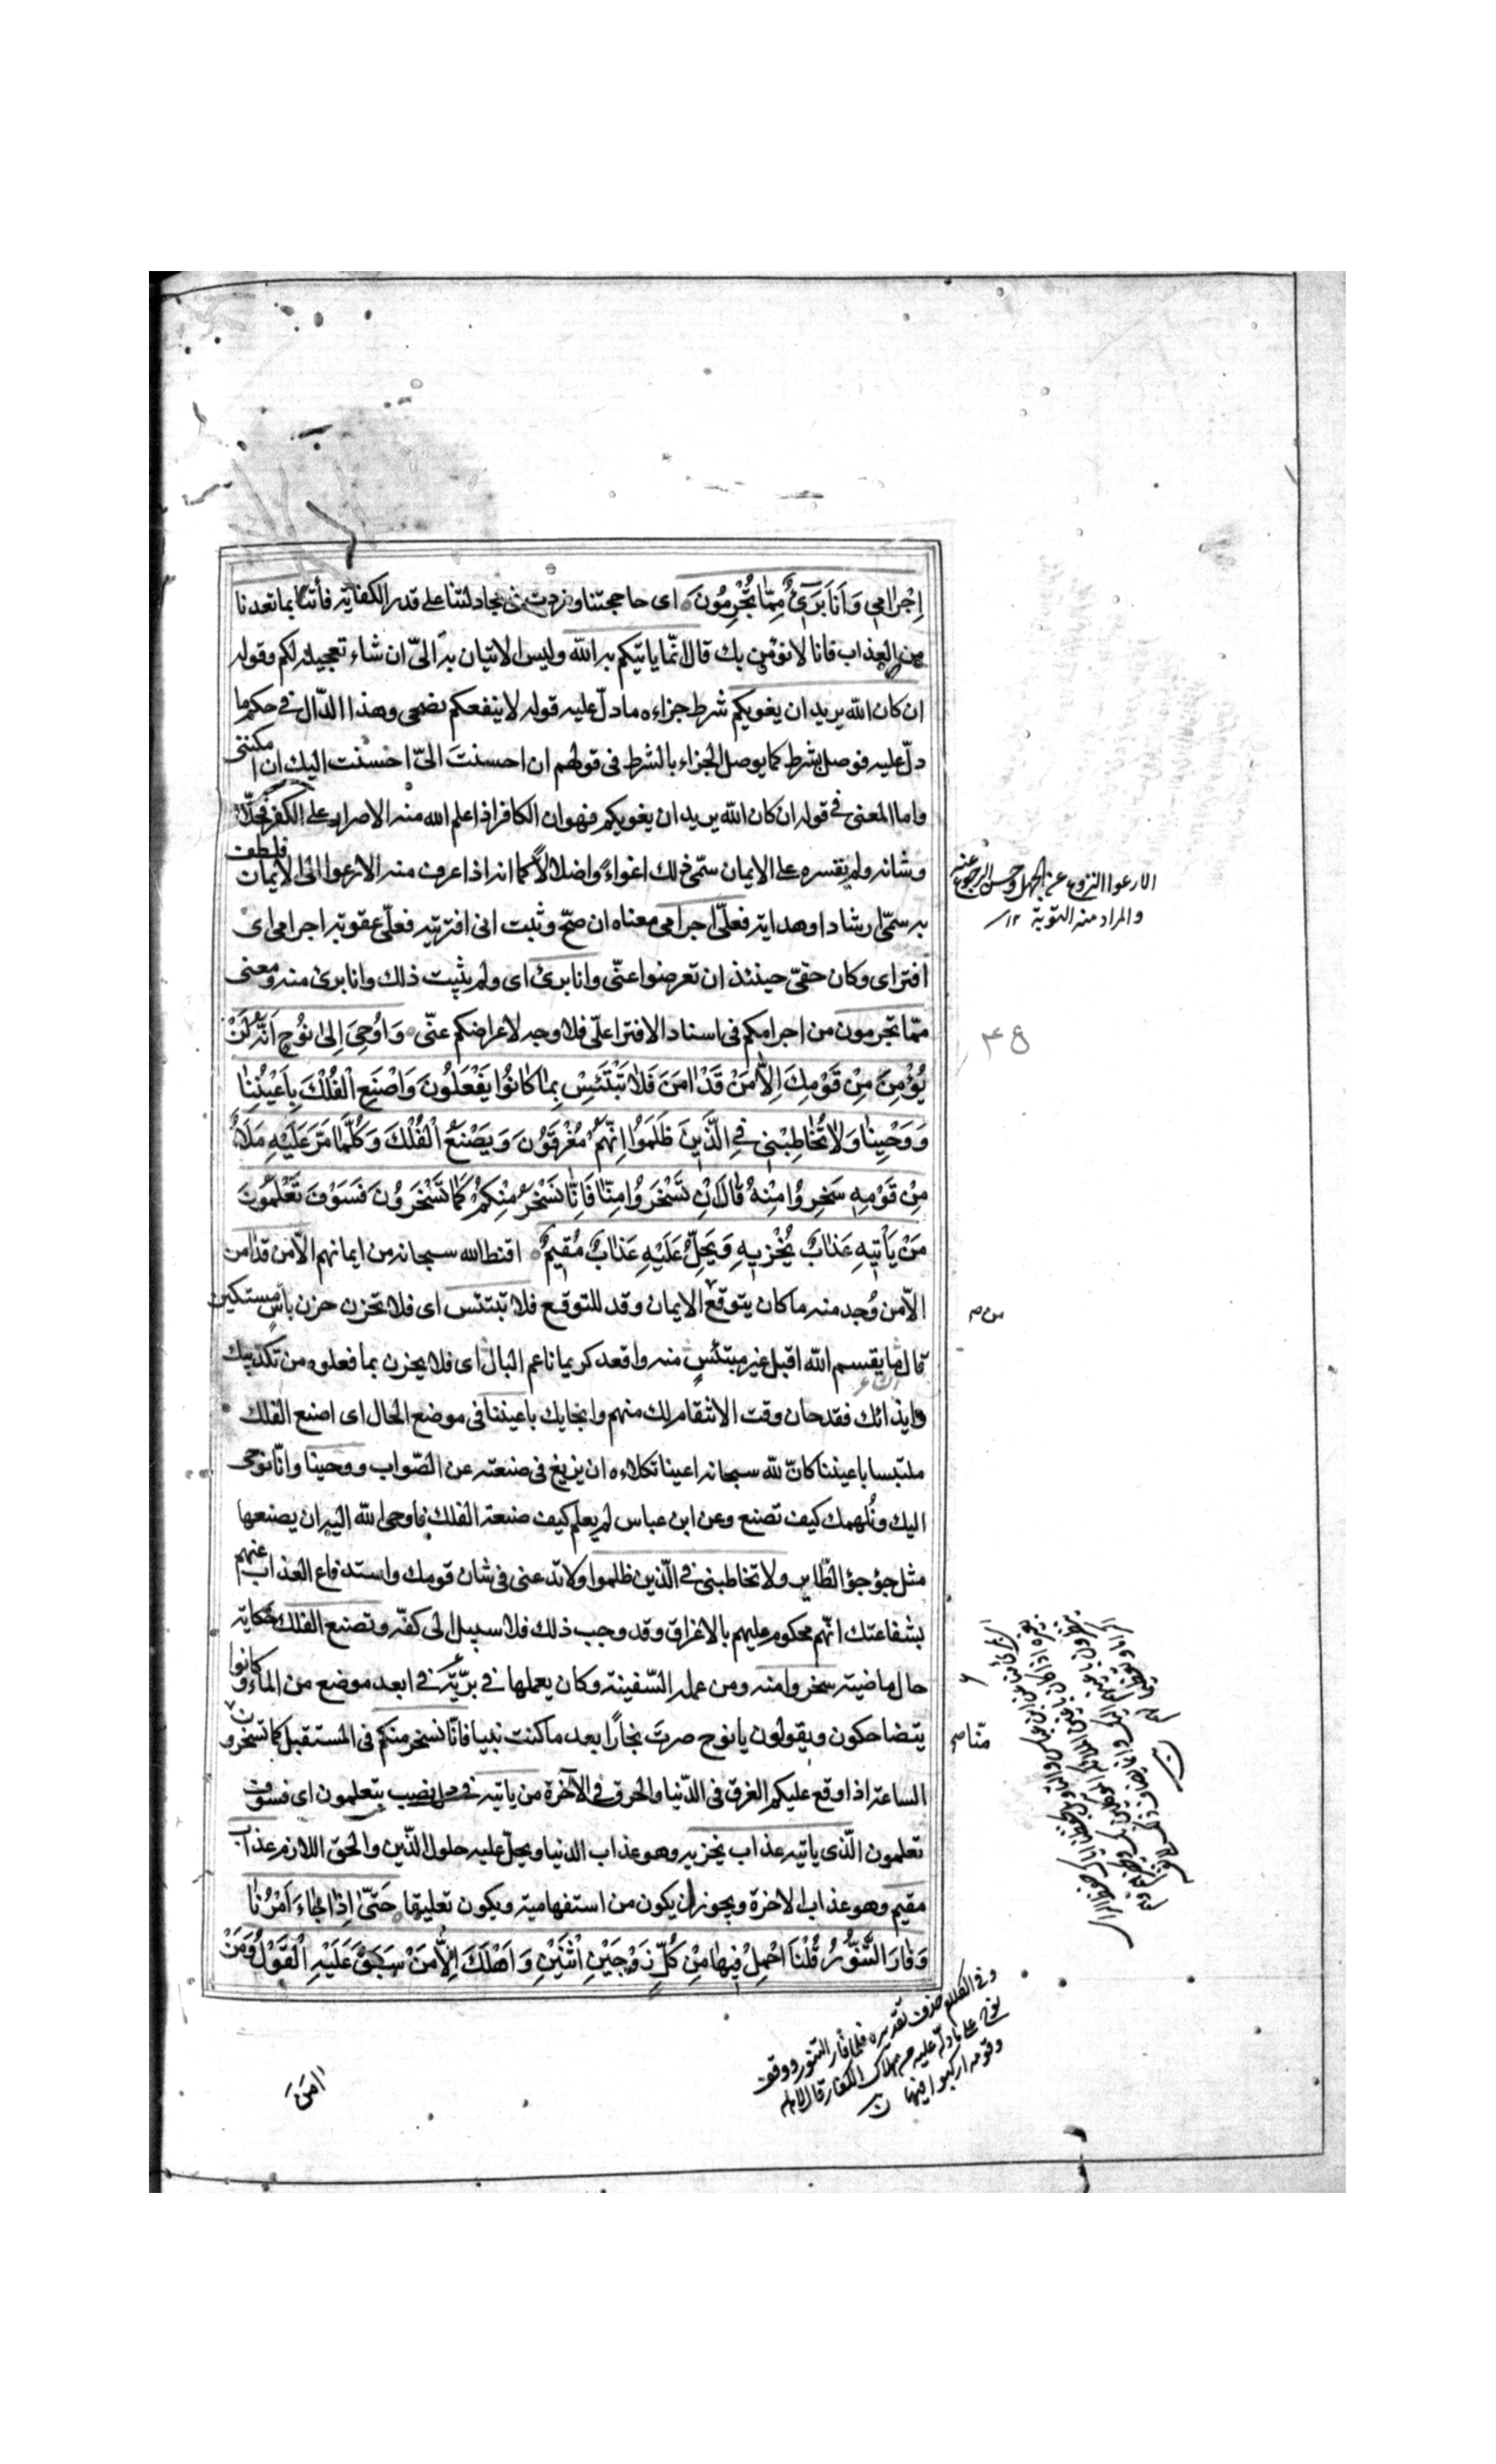 اِجْرَامِي وَاَنَا بَرَىءٌ مِمَّا تُجْرِمُونَ اى حاججتنا وزدت فى مجادلتنا على قدر الكفاية فأتنا بما تعدنا
من العذاب فانا لا نؤمن بك قال انّما ياتيكم به الله وليس الاتيان به الىّ ان شاء تعجيله لكم وقوله
ان كان الله يريد ان يغويكم شرط جزاءه ما دلّ عليه قوله لا ينفعكم نصحى وهذا الدّال فى حكم ما
دلّ عليه فوصل بشرط كما يوصل الجزاء بالشرط فى قولهم ان احسنتَ الىّ احسنت اليك ان امكننى
واما المعنى فى قوله ان كان الله يريد ان يغويكم فهو ان الكافر اذا علم الله منه الاصرار على الكفر فخلّاه
وشانه ولم يقسره على الايمان سمّى ذلك اغواءً واضلالاً كما انه اذا عرف منه الارعواء الى الايمان فلطف
به سمّى ارشادا وهداية فعلىّ اجرامى معناه ان صحّ وثبت انى افتريته فعلىّ عقوبة اجرامى اى
افتراى وكان حقىّ حينئذ ان تعرضوا عنّى وانا برئ اى ولم يثبت ذلك وانا برئ منه ومعنى
ممّا تجرمون من اجرامكم فى اسناد الافترا علىّ فلا وجه لاعراضكم عنّى وَاُوحِىَ اِلىٰ نُوحٍ اَنَّهُ لَنْ
يُؤْمِنَ مِنْ قَوْمِكَ اِلّٰا مَنْ قَدْ اٰمَنَ فَلاٰ تَبْتَئِسْ بِمٰا كٰانُوا يَفْعَلُونَ وَاصْنَعِ الْفُلْكَ بِاَعْيُنِنٰا
وَوَحْيِنٰا وَلاٰ تُخٰاطِبْنِى فِى الَّذِينَ ظَلَمُوا اِنَّهُمْ مُغْرَقُونَ وَيَصْنَعُ الْفُلْكَ وَكُلَّمٰا مَرَّ عَلَيْهِ مَلَاٌ
مِنْ قَوْمِهِ سَخِرُوا مِنْهُ قٰالَ اِنْ تَسْخَرُوا مِنّٰا فَاِنّٰا نَسْخَرُ مِنْكُمْ كَمٰا تَسْخَرُونَ فَسَوْفَ تَعْلَمُونَ
مَنْ يَاْتِيهِ عَذٰابٌ يُخْزِيهِ وَيَحِلُّ عَلَيْهِ عَذٰابٌ مُقِيمٌ اقنط الله سبحانه من ايمانهم الّا من قد امن
الّا من وُجد منه ما كان يتوقع الايمان وقد للتوقع فلا تبتئس اى فلا تحزن حزن بائس مستكين
قال ما يقسم الله اقبل غير مبتئس منه واقعد كريما ناعم البال اى فلا يحزن بما فعلوه من تكذيبك
وايذائك فقد حان وقت الانتقام لك منهم وانجايك باعيننا فى موضع الحال اى اصنع الفلك
ملتبسا باعيننا كانّ لله سبحانه اعينا تكلاءه ان يزيغ فى صنعته عن الصّواب ووحينا وانّا نوحى
اليك ونُلهمك كيف تصنع وعن ابن عباس لم يعلم كيف صنعة الفلك فاوحى الله اليه ان يصنعها
مثل جؤجؤ الطّاير ولا تخاطبنى فى الّذين ظلموا ولا تدعنى فى شان قومك واستدفاع العذاب عنهم
بشفاعتك انّهم محكوم عليهم بالاغراق وقد وجب ذلك فلا سبيل الى كفّه وتصنع الفلك حكاية
حال ماضية سخروا منه ومن عمله السّفينة وكان يعملها فى برّيّة فى ابعد موضع من الماء وكانوا
يتضاحكون ويقولون يا نوح صرتَ نجارًا بعد ما كنت نبيا فانّا نسخر منكم فى المستقبل كما تسخرون
الساعة اذا وقع عليكم الغرق فى الدّنيا والحرق فى الآخرة من ياتيه فى محل نصب بتعلمون اى فسوف
تعلمون الّذى ياتيه عذاب يخزيه وهو عذاب الدنيا ويحلّ عليه حلول الدّين والحق اللازم عذاب
مقيم وهو عذاب الاخرة ويجوز ان يكون من استفهامية ويكون تعليقا حَتّىٰ اِذٰا جٰاءَ اَمْرُنٰا
وَفٰارَ التَّنُّورُ قُلْنَا احْمِلْ فِيهٰا مِنْ كُلٍّ زَوْجَيْنِ اثْنَيْنِ وَاَهْلَكَ اِلّٰا مَنْ سَبَقَ عَلَيْهِ الْقَوْلُ وَمَنْ
الارعواء النزوع عن الجهل وحسن الرجوع عنه
والمراد منه التوبة ١٢
من ص
منا ص
وفى الكلام حذف تقديره فلما فار التنور ووقف
نوح على ما دله عليه من هلاك الكفار قال لاهله
وقومه اركبوا فيها
اٰمَنَ